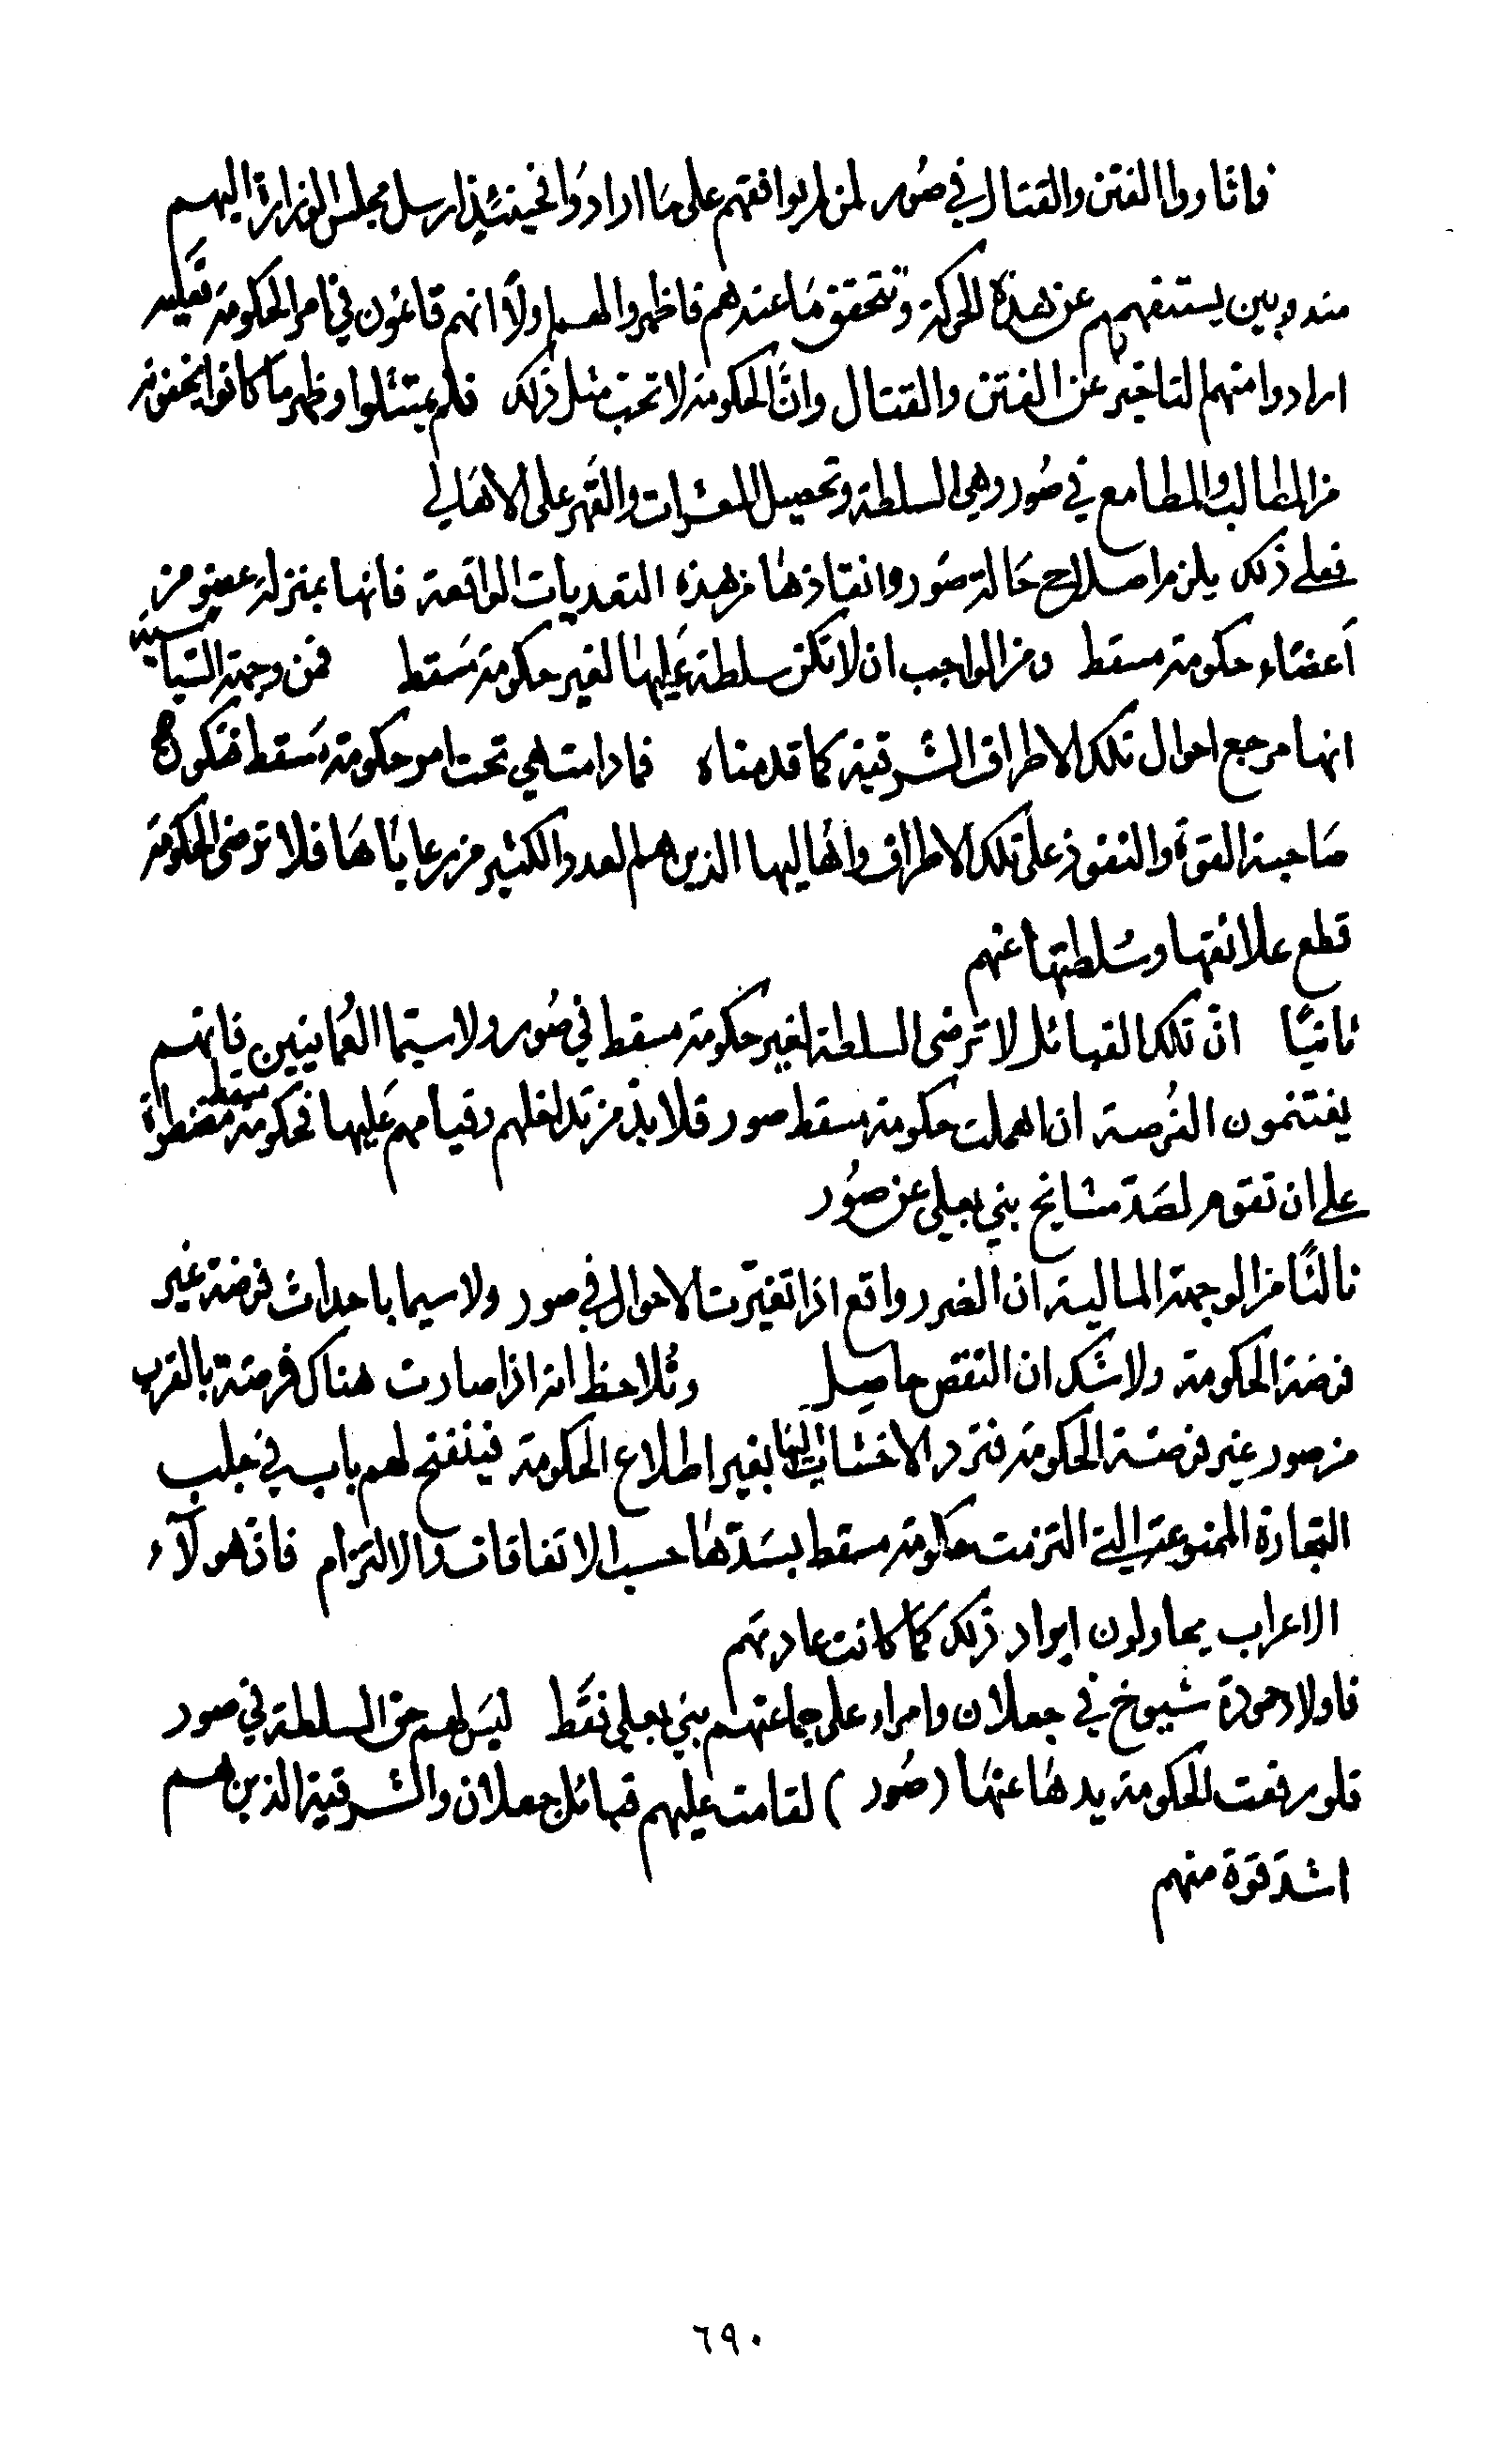 فاثاروا الفتن والقتال في صُور لمن لم يوافقهم على ما ارادوا فحينئذٍ ارسل مجلس الوزارة اليهم
مندوبين يستفهمهم عن هذه الحركة ونتحقق مَا عندهم فاظهروا لهم اولاً انهم قائمون في امر الحكومة
ارادوا منهم التاخير عن الفتن والقتال وانَّ الحكومة لا تحب مثل ذلك فلم يمتثلوا وظهر ما كانوا يخفونه
من المطالب والمطامع في صُور وهي السلطة وتحصيل العشرات والقهر على الاهالي
فعلى ذلك يلزم اصلاح حَالة صَور وانقاذهَا من هذه التعديات الواقعة فانها بمنزلة عضو من
أعضاء حكومة مسقط ومن الواجب ان لا تكن سلطة عَليهَا لغير حكومة مَسقط فمن وجهة السّياسية
انها مرجع احوال تلك الاطراف الشرقية كما قدمناه فما دامت هي تحت امر حكومة مَسقط فتكون هي
صَاحبة القوّة والنفوذ على تلك الاطراف واهاليها الذين هم العدد الكثير من رعاياهَا فلا ترضى الحكومة
قطع علائقها وسُلطتها عنهم
ثانيًا انّ تلك القبائل لا ترضى السلطة لغير حكومة مسقط في صُور ولا سيّما العُمانيين فانهم
يغتنمون الفُرصة ان اهملت حكومة مسقط صور فلا بدّ من تداخلهم وقيامهم عَليها فحكومة مسقط مضطرة
على ان تقوم لصَدّ مشايخ بني بعلي عن صُور
ثالثًا من الوجهة المالية ان الضرر واقع اذا تغيّرت الاحوال في صور ولا سيما باحداث فرضة غير
فرضة الحكومة ولا شكّ ان النقص حاصِل ونُلاحظ انه اذا صارت هناك فرضة بالقرب
من صور غير فرضة الحكومة فترد الاخشاب اليها بغير اطلاع الحكومة فينفتح لهم باب في جلب
التجارة الممنوعة التي التزمت حكومة مسقط بسَدّهَا حسب الاتفاقات والالتزام فانّ هولآء
الاعراب يحاولون ايراد ذلك كما كانت عادتهم
فاولاد حمودة شيوخ في جعلان وامراء على جماعتهم بني بعلي فقَط ليَس لهم حق السلطة في صور
فلو رفعت الحكومة يدهَا عنهَا (صُور) لقامت عليهم قبائل جعلان والشرقية الذين هم
اشدّ قوّة منهم
٦٩٠